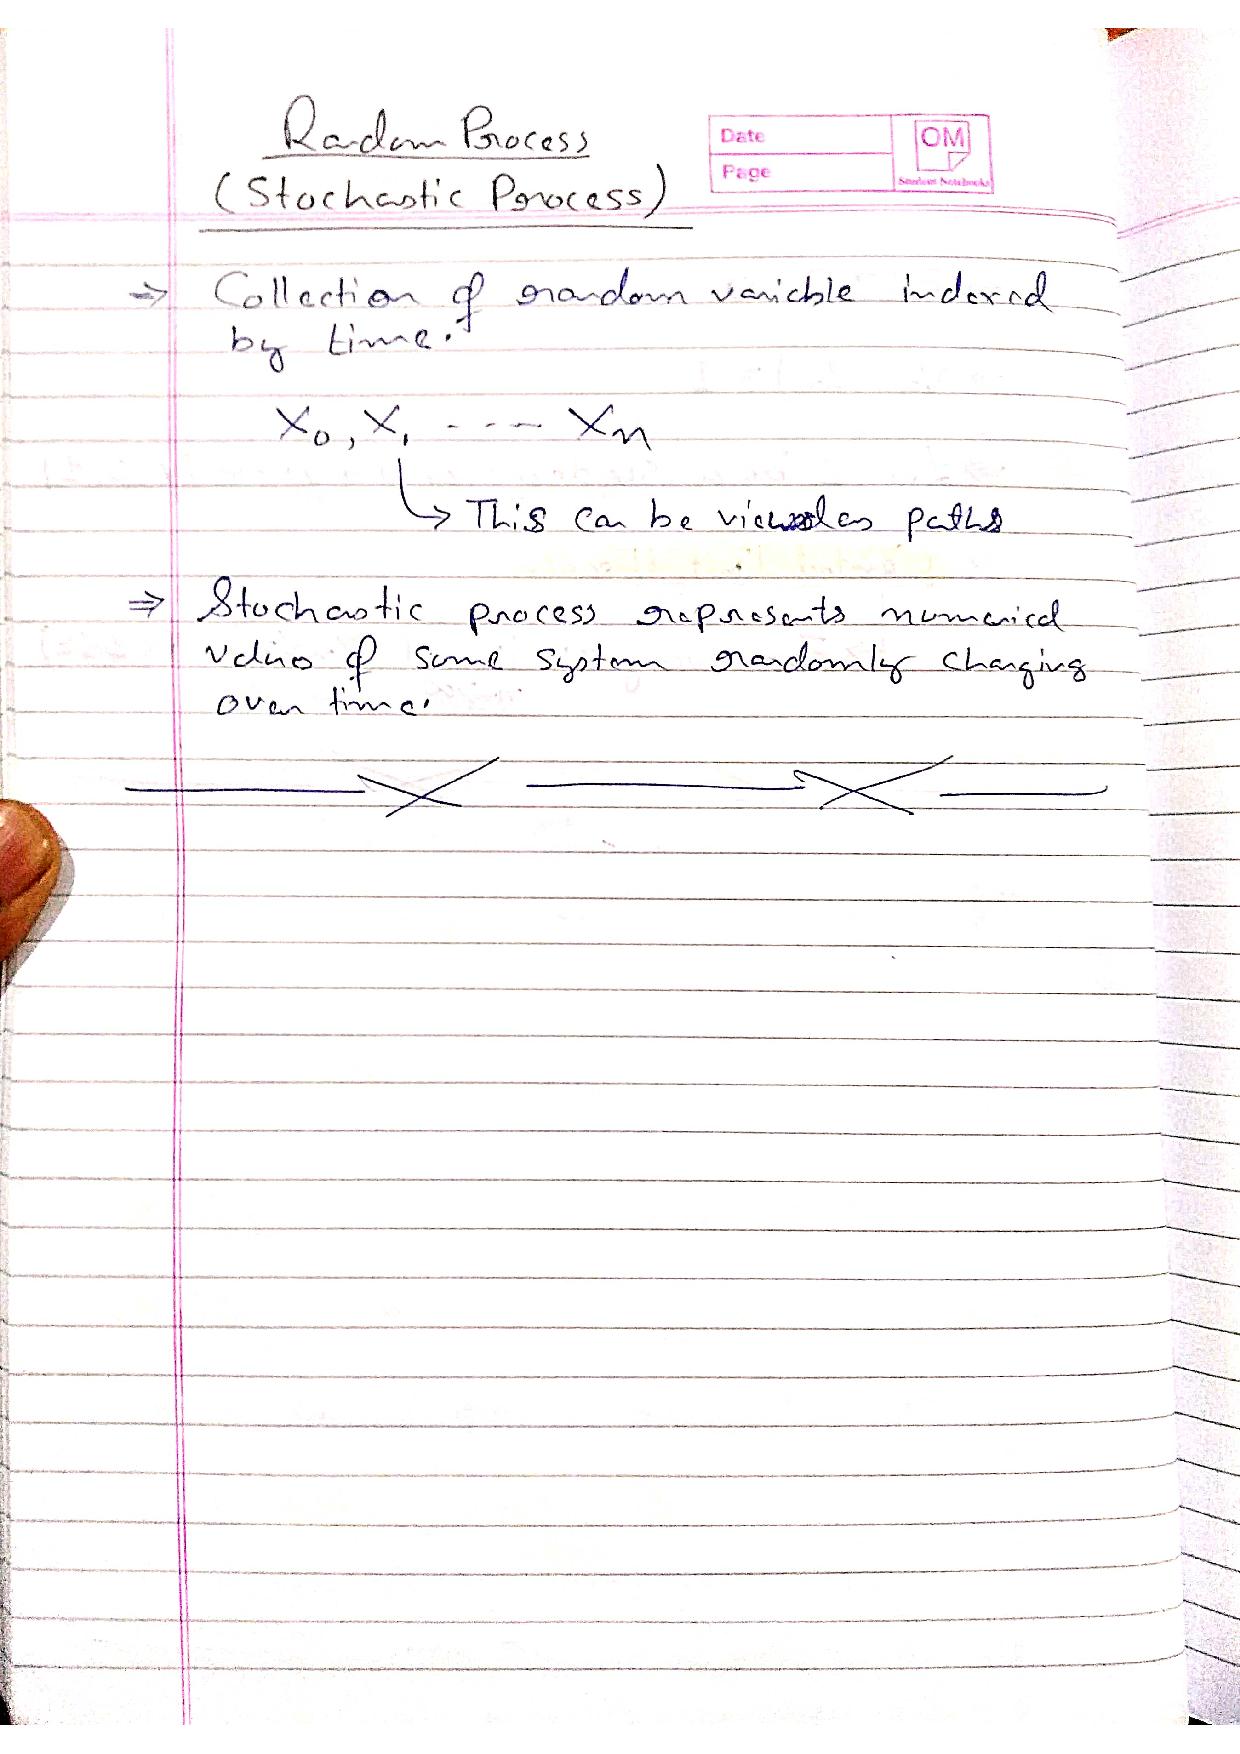 Random Process
(Stochastic Process)
Date
Page
OM
Student Notebooks
⇒ Collection of random variable indexed
by time.
X₀, X₁ ---- Xₙ
↳ This can be viewed as paths
⇒ Stochastic process represents numerical
values of some system randomly changing
over time.